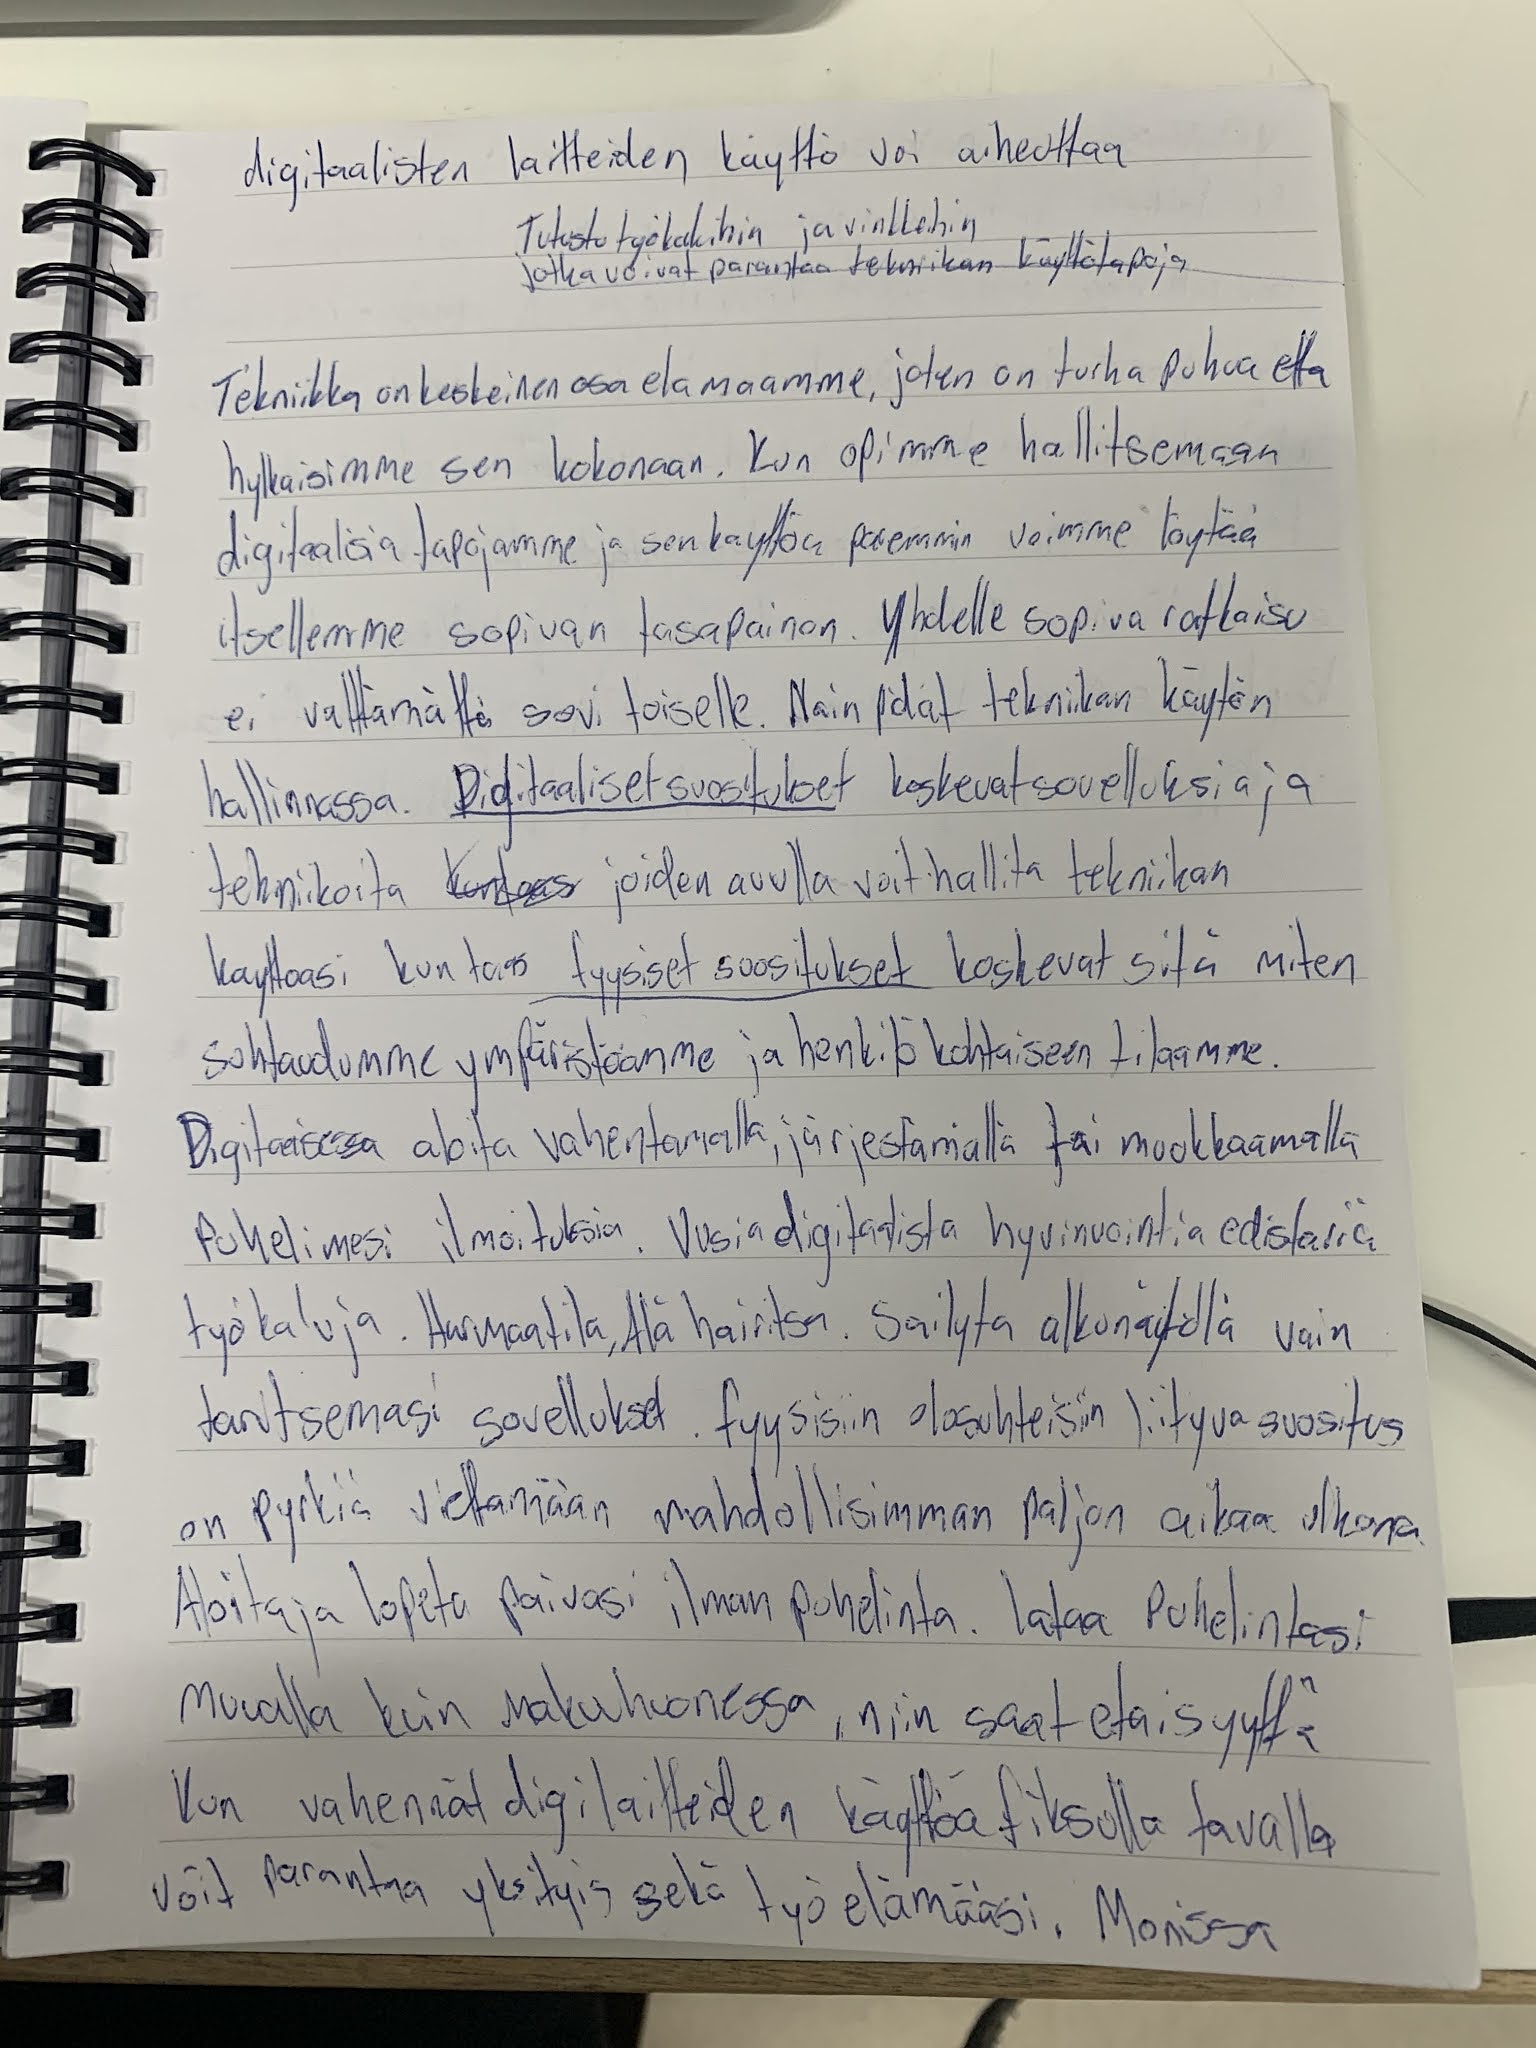 digitaalisten laitteiden käyttö voi aiheuttaa
Tutustu työkaluihin ja vinkkeihin
jotka voivat parantaa tekniikan käyttötapoja
Tekniikka on keskeinen osa elamaamme, joten on turha puhua etta
hylkaisimme sen kokonaan. Kun opimme hallitsemaan
digitaalisia tapojamme ja sen kayttöa paremmin voimme löytää
itsellemme sopivan tasapainon. Yhdelle sopiva ratkaisu
ei valttämättä sovi toiselle. Nain pidät tekniikan käytön
hallinnassa. Digitaaliset suositukset koskevat sovelluksia ja
tekniikoita joiden avulla voit hallita tekniikan
kayttoasi kun taas fyysiset suositukset koskevat sitä miten
suhtaudumme ympäristöämme ja henkilökohtaiseen tilaamme.
Digitaalisessa aloita vahentamalla, järjestämällä tai muokkaamalla
Puhelimesi ilmoituksia. Uusia digitaalista hyvinvointia edistäviä
työkaluja. Harmaatila, Älä hairitse. Sailyta alkunäytöllä vain
tarvitsemasi sovellukset. fyysisiin olosuhteisiin liityva suositus
on pyrkiä viettamään mahdollisimman paljon aikaa ulkona.
Aloita ja lopeta paivasi ilman puhelinta. lataa Puhelintasi
muualla kuin makuuhuonessa, niin saat etaisyyttä
Kun vahennät digilaitteiden käyttöä fiksulla tavalla
voit parantaa yksityis sekä työelämääsi. Monissa